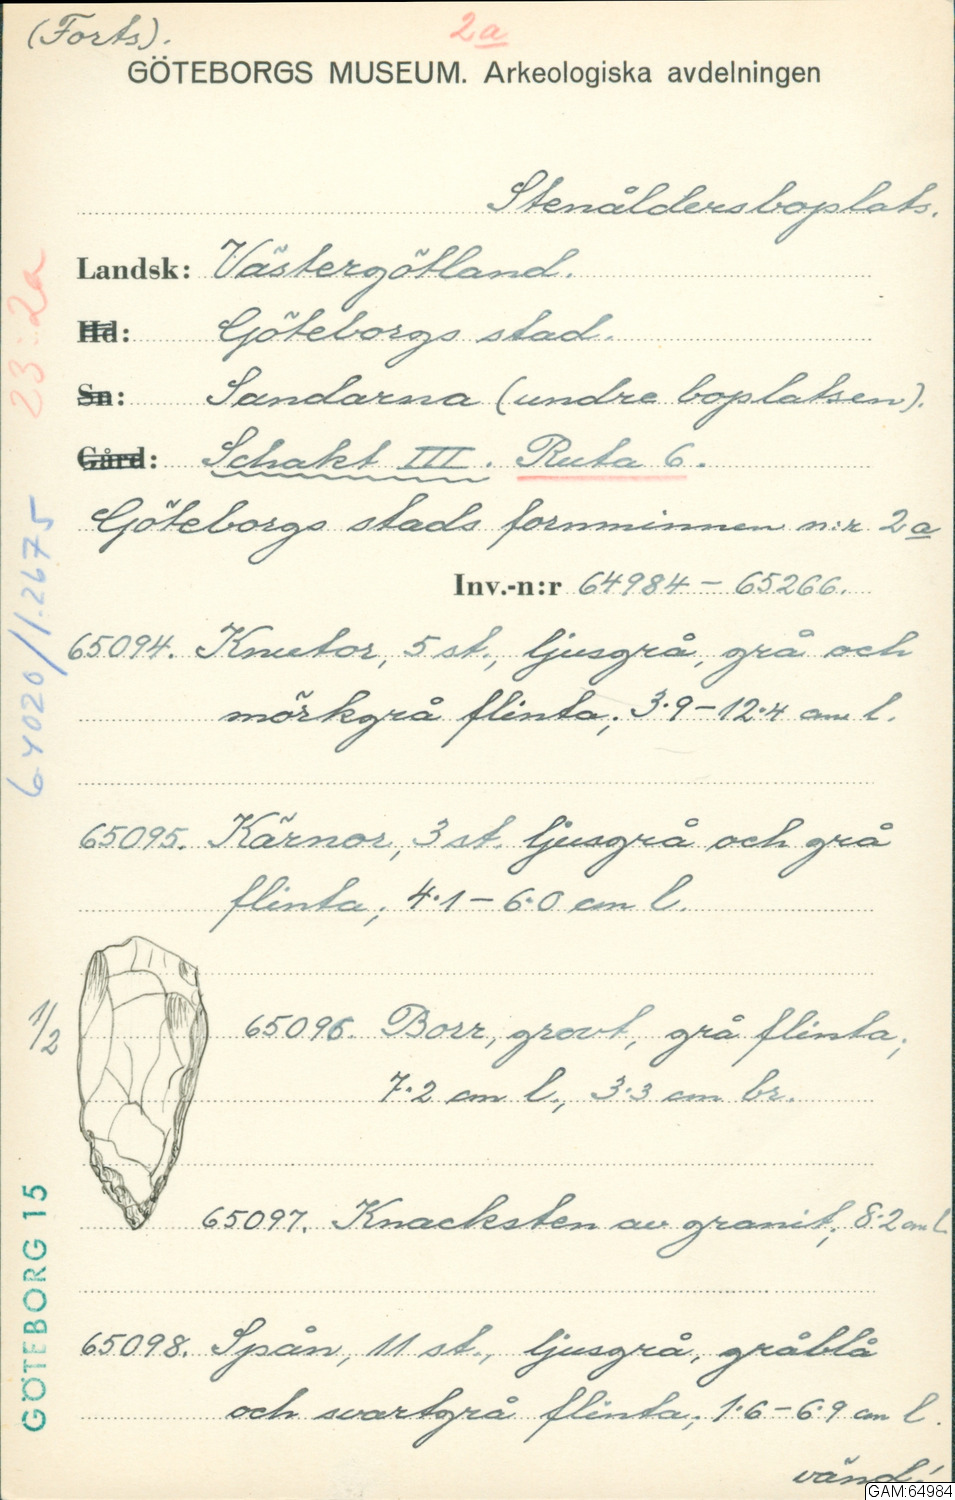 (Forts).
2a
GÖTEBORGS MUSEUM. Arkeologiska avdelningen
Stenåldersboplats.
Landsk: Västergötland.
Hd: Göteborgs stad.
Sn: Sandarna (undre boplatsen).
Gård: Schakt III. Ruta 6.
Göteborgs stads fornminnen n:r 2a
Inv.-n:r 64984 – 65266.
65094. Knutor, 5 st., ljusgrå, grå och
mörkgrå flinta; 3·9 – 12·4 cm l.
65095. Kärnor, 3 st. ljusgrå och grå
flinta; 4·1 – 6·0 cm l.
1/2
65096. Borr, grovt, grå flinta;
7·2 cm l., 3·3 cm br.
65097. Knacksten av granit; 8·2 cm l.
65098. Spån, 11 st., ljusgrå, gråblå
och svartgrå flinta; 1·6 – 6·9 cm l.
vänd!
23:2a
64020/1.2675
GÖTEBORG 15
GAM:64984